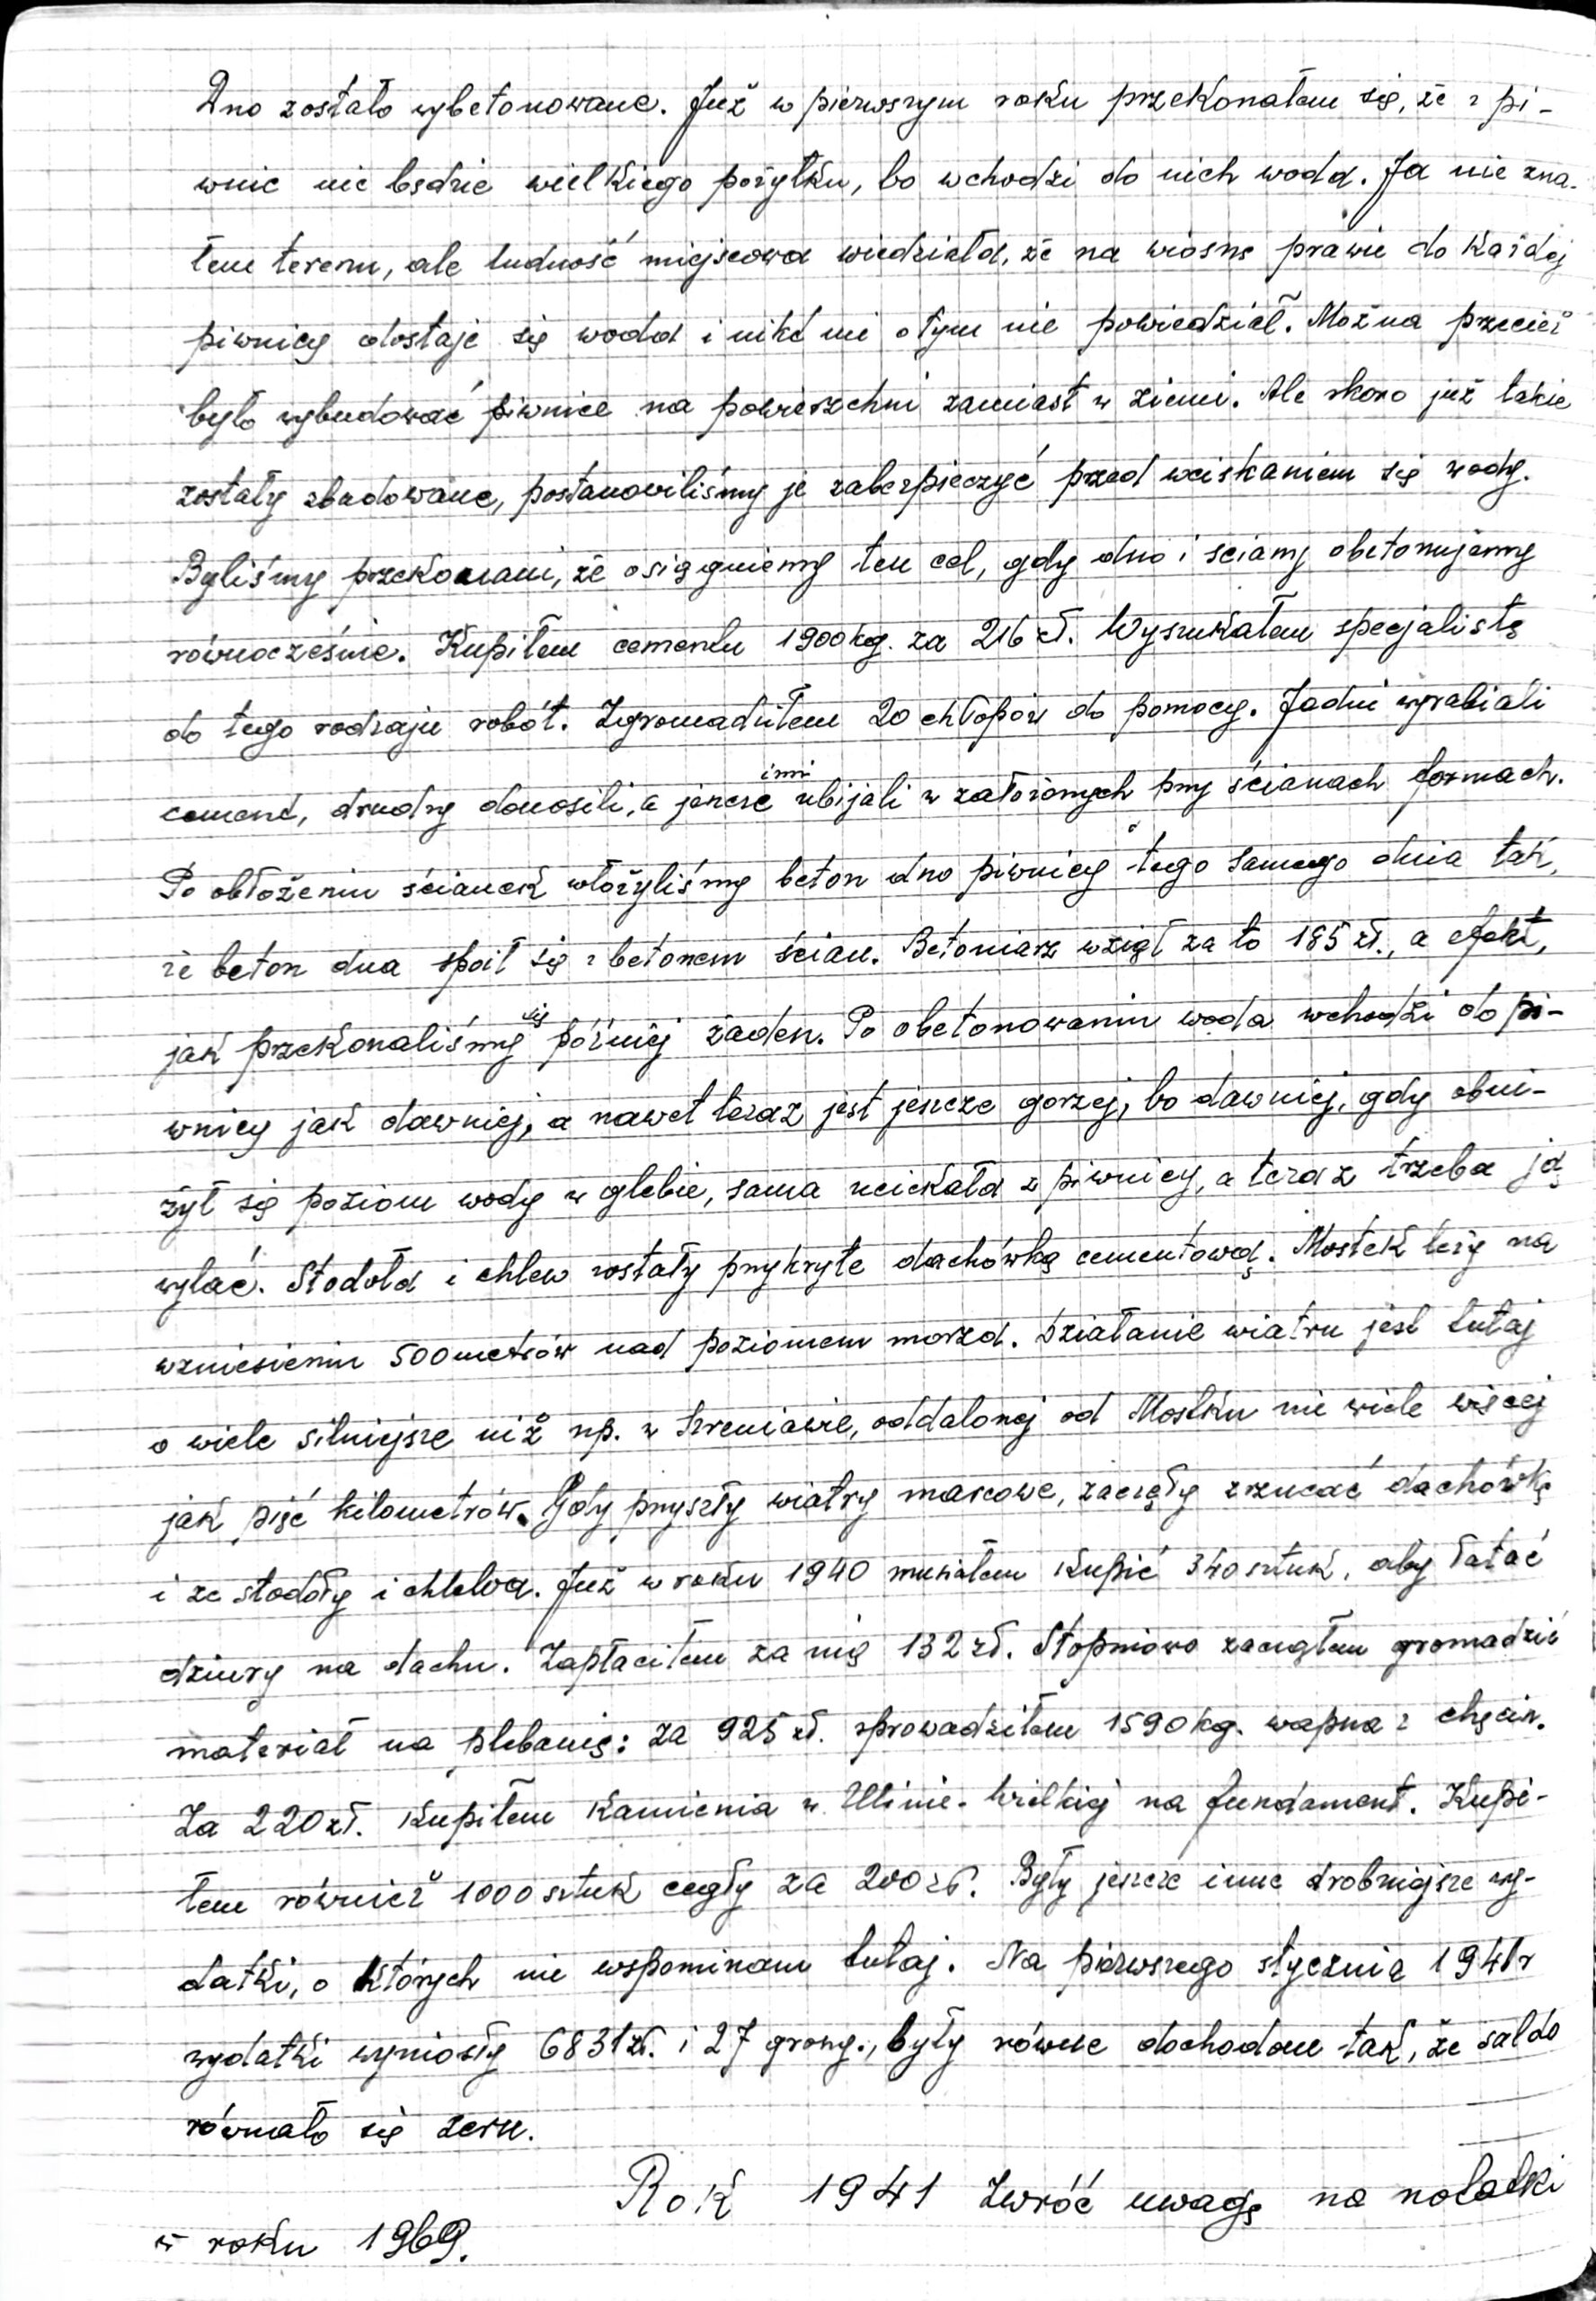 Dno zostało wybetonowane. Już w pierwszym roku przekonałem się, że z pi-
wnic nie będzie wielkiego pożytku, bo wchodzi do nich woda. Ja nie zna-
łem terenu, ale ludność miejscowa wiedziała, że na wiosnę prawie do każdej
piwnicy dostaje się woda i nikt mi o tym nie powiedział. Można przecież
było wybudować piwnice na powierzchni zamiast w ziemi. Ale skoro już takie
zostały zbudowane, postanowiliśmy je zabezpieczyć przed wciskaniem się wody.
Byliśmy przekonani, że osiągniemy ten cel, gdy dno i ściany obetonujemy
równocześnie. Kupiłem cementu 1900 kg. za 216 zł. Wyszukałem specjalistę
do tego rodzaju robót. Zgromadziłem 20 chłopów do pomocy. Jedni wyrabiali
cement, drudzy donosili, a jeszcze inni ubijali w założonych przy ścianach formach.
Po obłożeniu ścianek włożyliśmy beton dno piwnicy tego samego dnia tak,
że beton dna spoił się z betonem ścian. Betoniarz wziął za to 185 zł., a efekt,
jak przekonaliśmy się później żaden. Po obetonowaniu woda wchodzi do pi-
wnicy jak dawniej, a nawet teraz jest jeszcze gorzej, bo dawniej, gdy obni-
żył się poziom wody w glebie, sama uciekała z piwnicy, a teraz trzeba ją
wylać. Stodoła i chlew zostały przykryte dachówką cementową. Mostek leży na
wzniesieniu 500 metrów nad poziomem morza. Działanie wiatru jest tutaj
o wiele silniejsze niż np. w Szreniawie, oddalonej od Mostku nie wiele więcej
jak pięć kilometrów. Gdy przyszły wiatry marcowe, zaczęły zrzucać dachówkę
i ze stodoły i chlewa. Już w roku 1940 musiałem kupić 340 sztuk, aby łatać
dziury na dachu. Zapłaciłem za nią 132 zł. Stopniowo zacząłem gromadzić
materiał na plebanię: za 925 zł. sprowadziłem 1590 kg. wapna z Chęcin.
Za 220 zł. kupiłem kamienia w Ulinie-Wielkiej na fundament. Kupi-
łem również 1000 sztuk cegły za 200 zł. Były jeszcze inne drobniejsze wy-
datki, o których nie wspominam tutaj. Na pierwszego stycznia 1941r
wydatki wyniosły 6831 zł. i 27 groszy., były równe dochodom tak, że saldo
równało się zeru.
Rok 1941 Zwróć uwagę na notatki
w roku 1969.